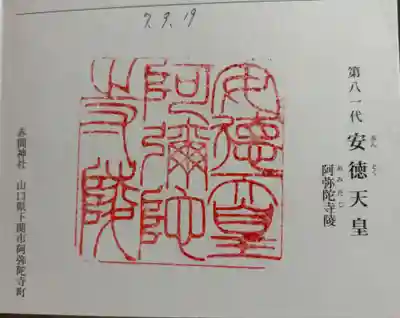 7. 9. 19
第八一代 安徳天皇
あん とく
阿弥陀寺陵
あみだじ
安德天皇
阿彌陀
寺陵
赤間神社 山口県下関市阿弥陀寺町